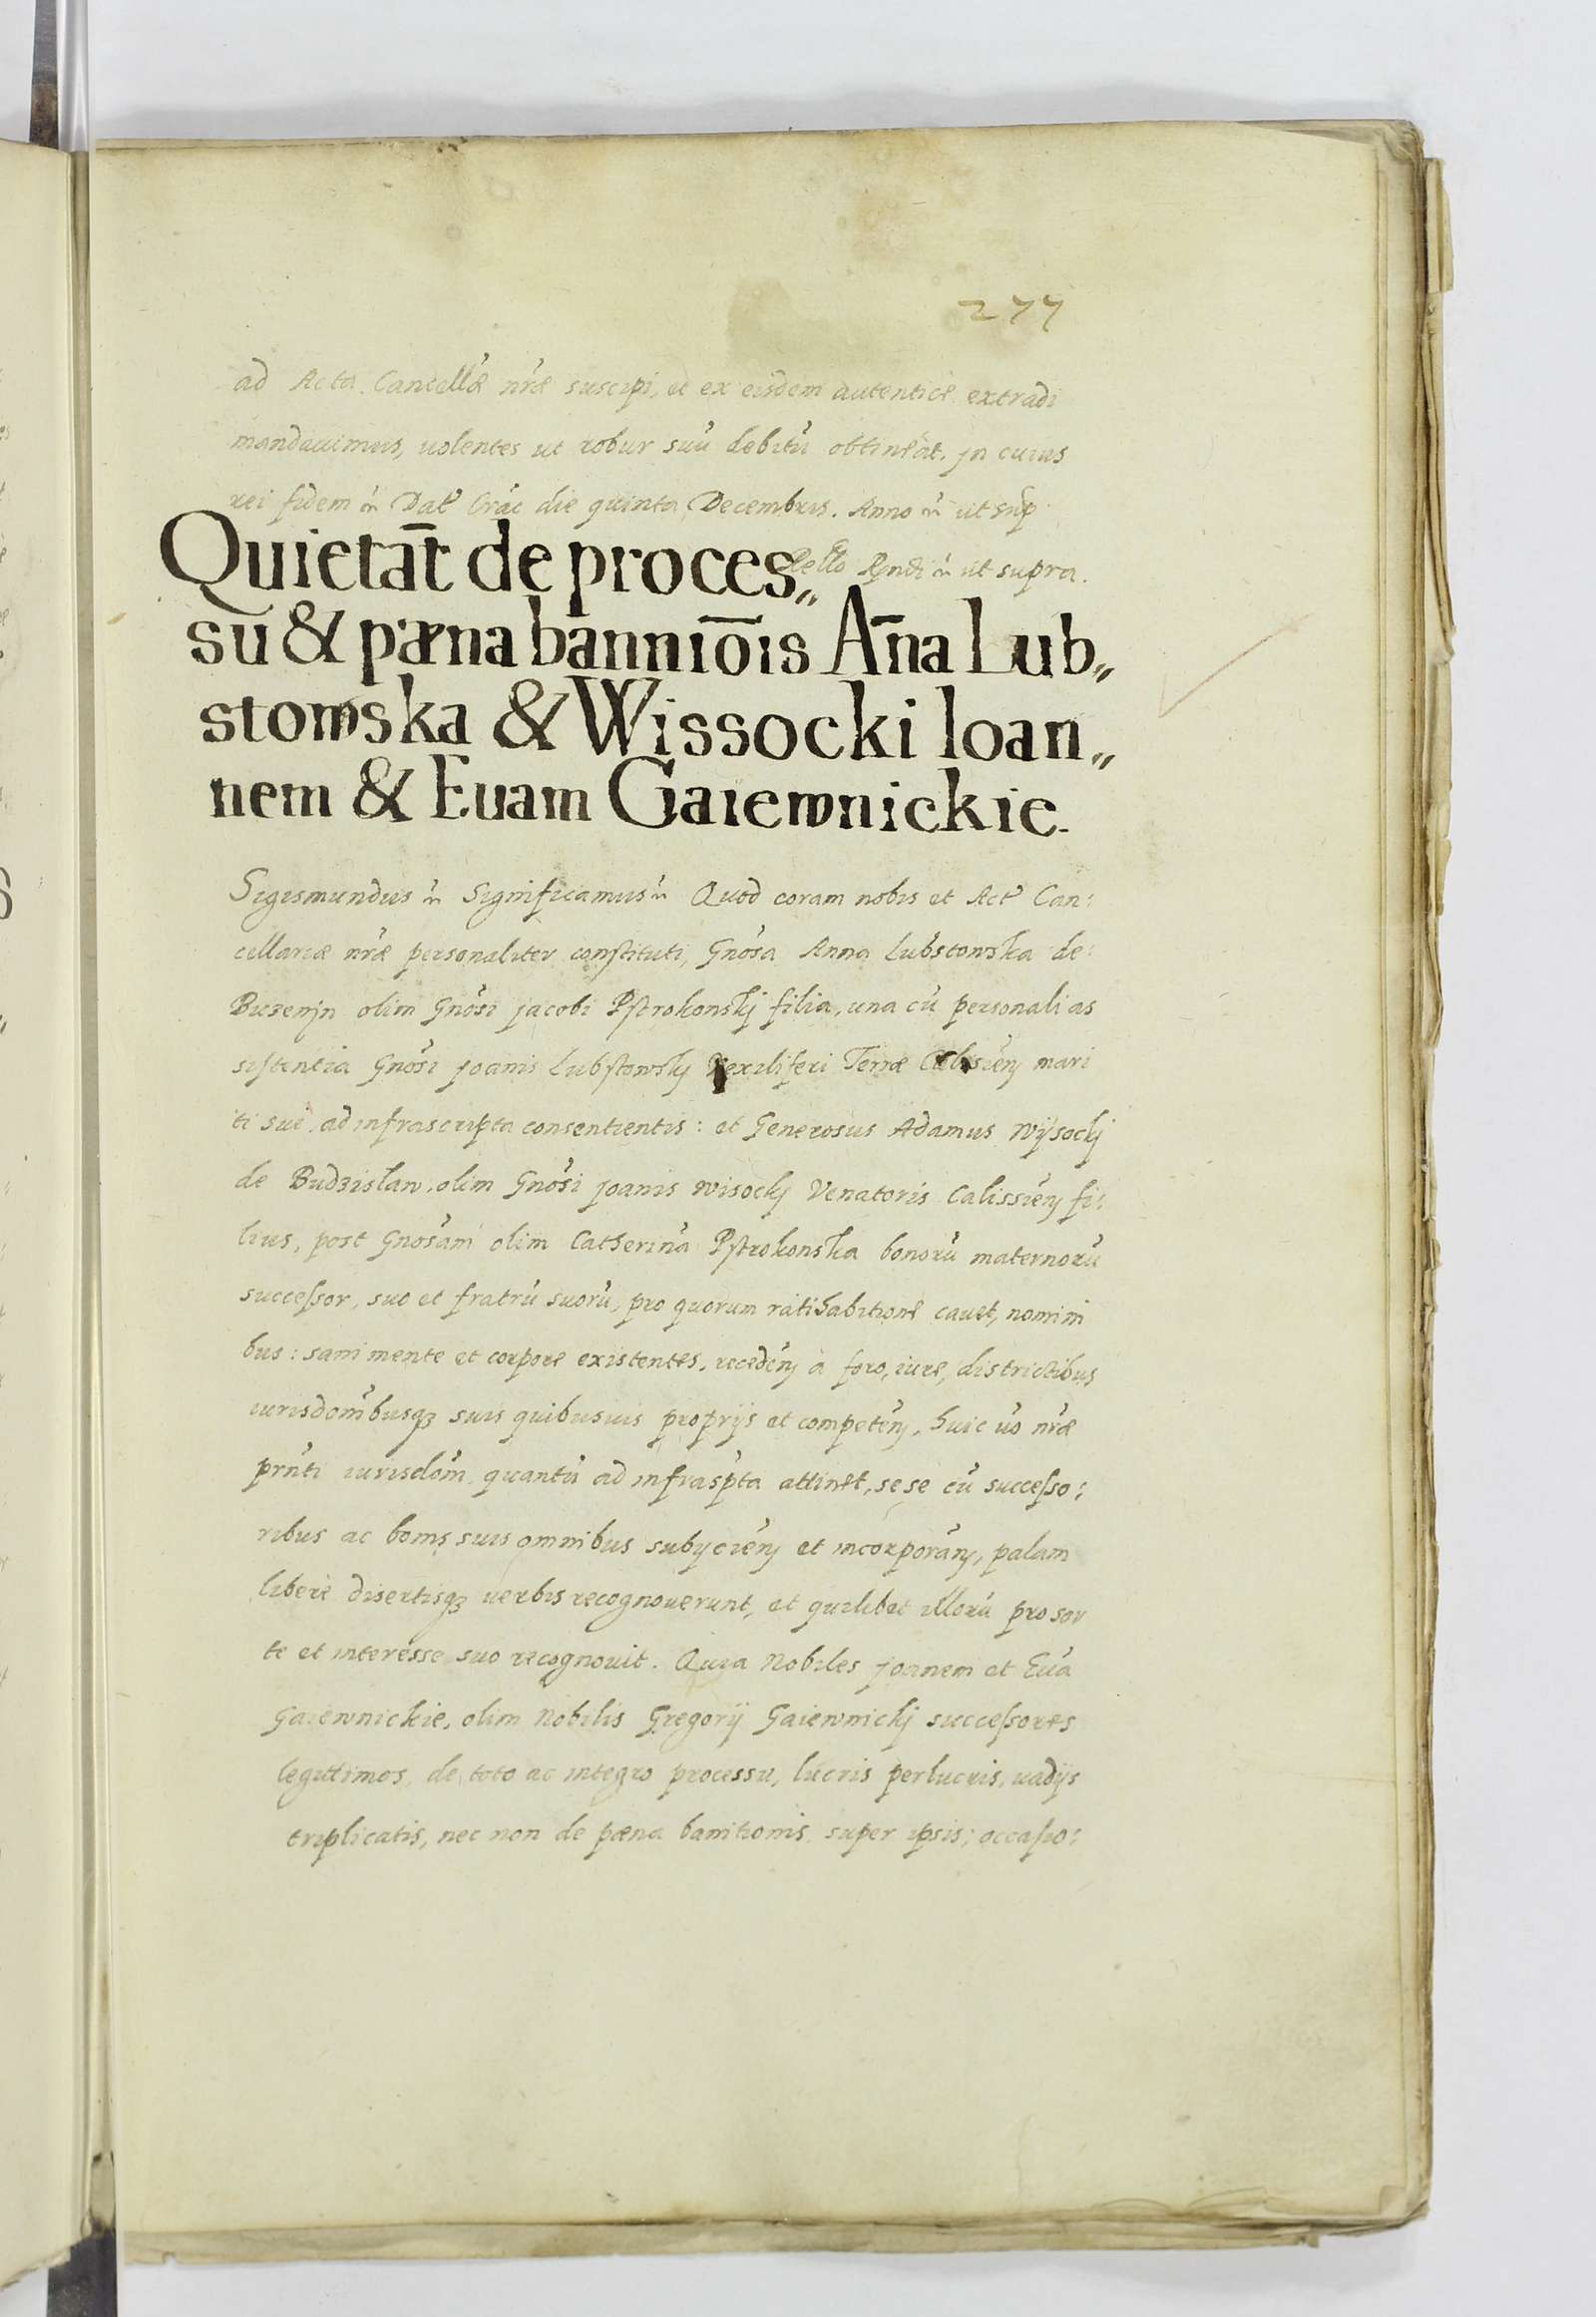 277
ad Acta Cancellӕ nr̃ӕ suscipi, et ex eisdem autenticè extradi
mandauimus, uolentes ut robur suũ debitũ obtineat. Jn cuius
rei fidem Dat̃ Crac̃ die quinta Decembris. Anno ut sup̃
Relto Rndi ut supra.
Quietat̄ de proces„
su & pӕna bannio̅is An̄a Lub„
stowska & Wissocki Ioan„
nem & Euam Gaiewnickie.
Sigismundus Significamus Quod coram nobis et Act̃ Can:
cellariӕ nr̃ӕ personaliter constituti, Gnõsa Anna Lubstowska de
Buzenin olim Gnõsi Jacobi Pstrokonskj filia, una cũ personali as
sistentia Gnõsi Joanis Lubstowskj Vexiliferi Terrӕ Calisieñ mari
ti sui ad infrascripta consentientis: et Generosus Adamus Wÿsockj
de Budzislaw, olim Gnõsi Joanis Wisockj Venatoris Calissieñ fi:
lius, post Gnõsam olim Catherina Pstrokonska bonorũ maternorũ
successor, suo et fratrũ suorũ, pro quorum ratihabitione cauet, nomini
bus: sani mente et corpore existentes, recedeñ à foro, iure, districtibus
iurisdoñibusqȝ suis quibusuis proprijs et competeñ, huic uõ nr̃ӕ
prñti iurisdoñi quantũ ad infrasp̃ta attinet, sese cũ successo:
ribus ac bonis suis omnibus subycieñ et incorporañ, palam
liberè disertisqȝ uerbis recognouerunt, et quilibet illorũ pro sor
te et interesse suo recognouit. Quia Nobiles Joanem et Euã
Gaiewnickie, olim Nobilis Gregorÿ Gaiewnickj successores
legittimos, de toto ac integro processu, lucris perlucris, uadÿs
triplicatis, nec non de pӕna banitionis super ipsis, occasio: